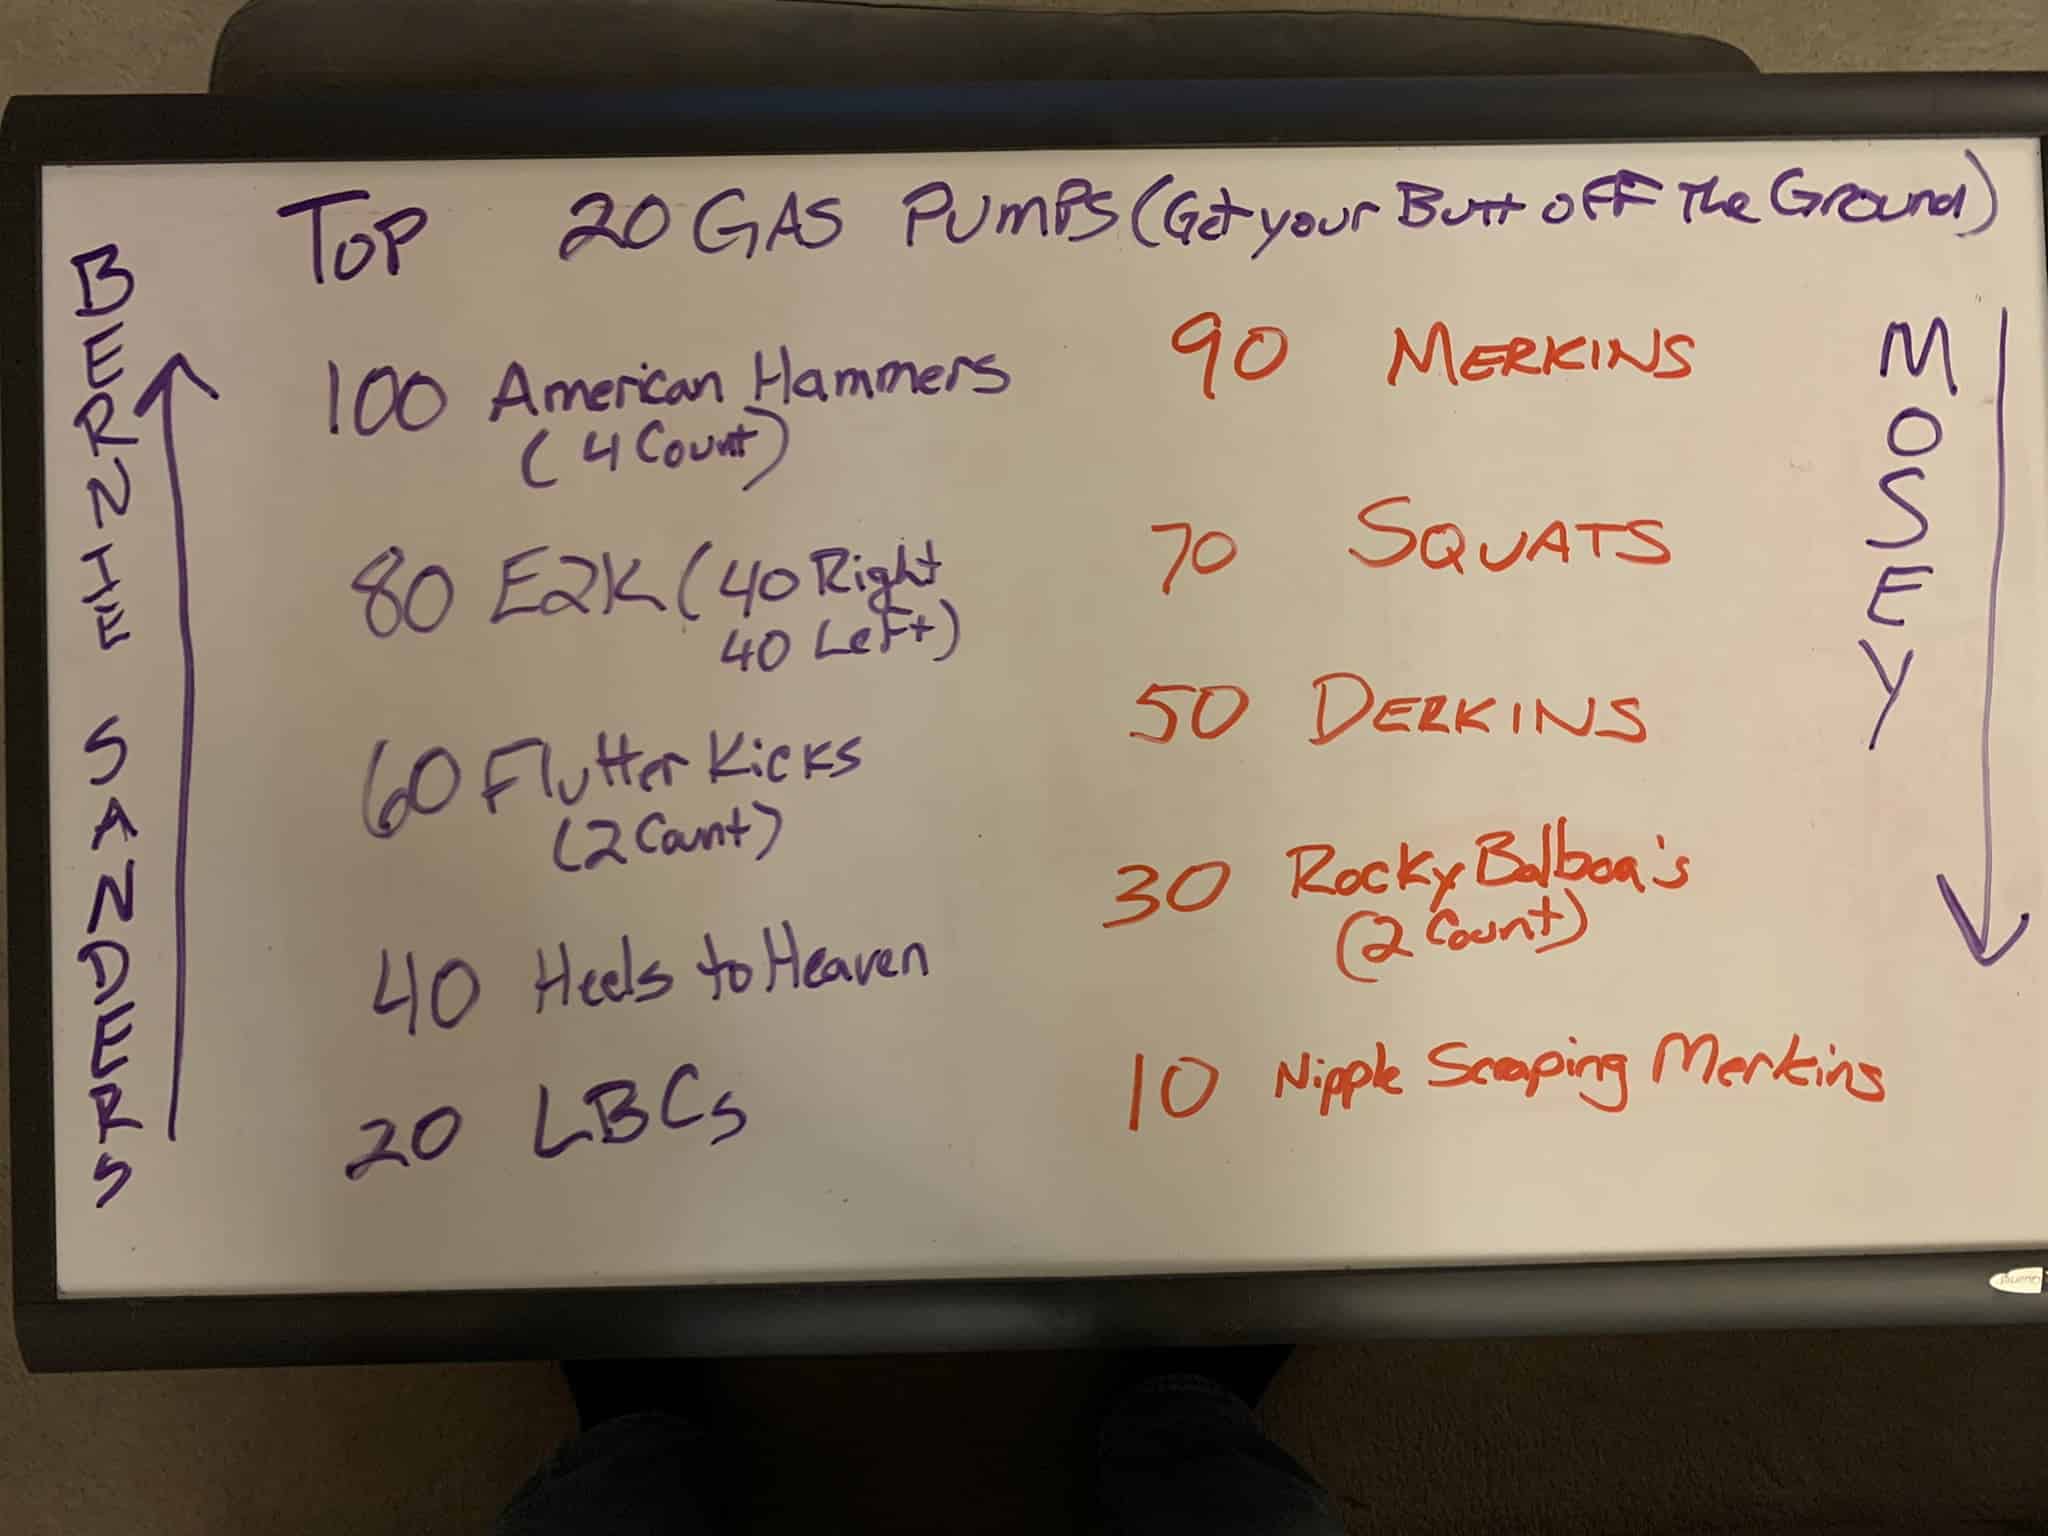 TOP 20 GAS PUMPS (Get your Butt off The Ground)
BERNIE SANDERS
100 American Hammers
(4 Count)
80 E2K (40 Right
40 Left)
60 Flutter Kicks
(2 Count)
40 Heels to Heaven
20 LBCs
90 MERKINS
70 SQUATS
50 DERKINS
30 Rocky Balboa's
(2 Count)
10 Nipple Scraping Merkins
MOSEY